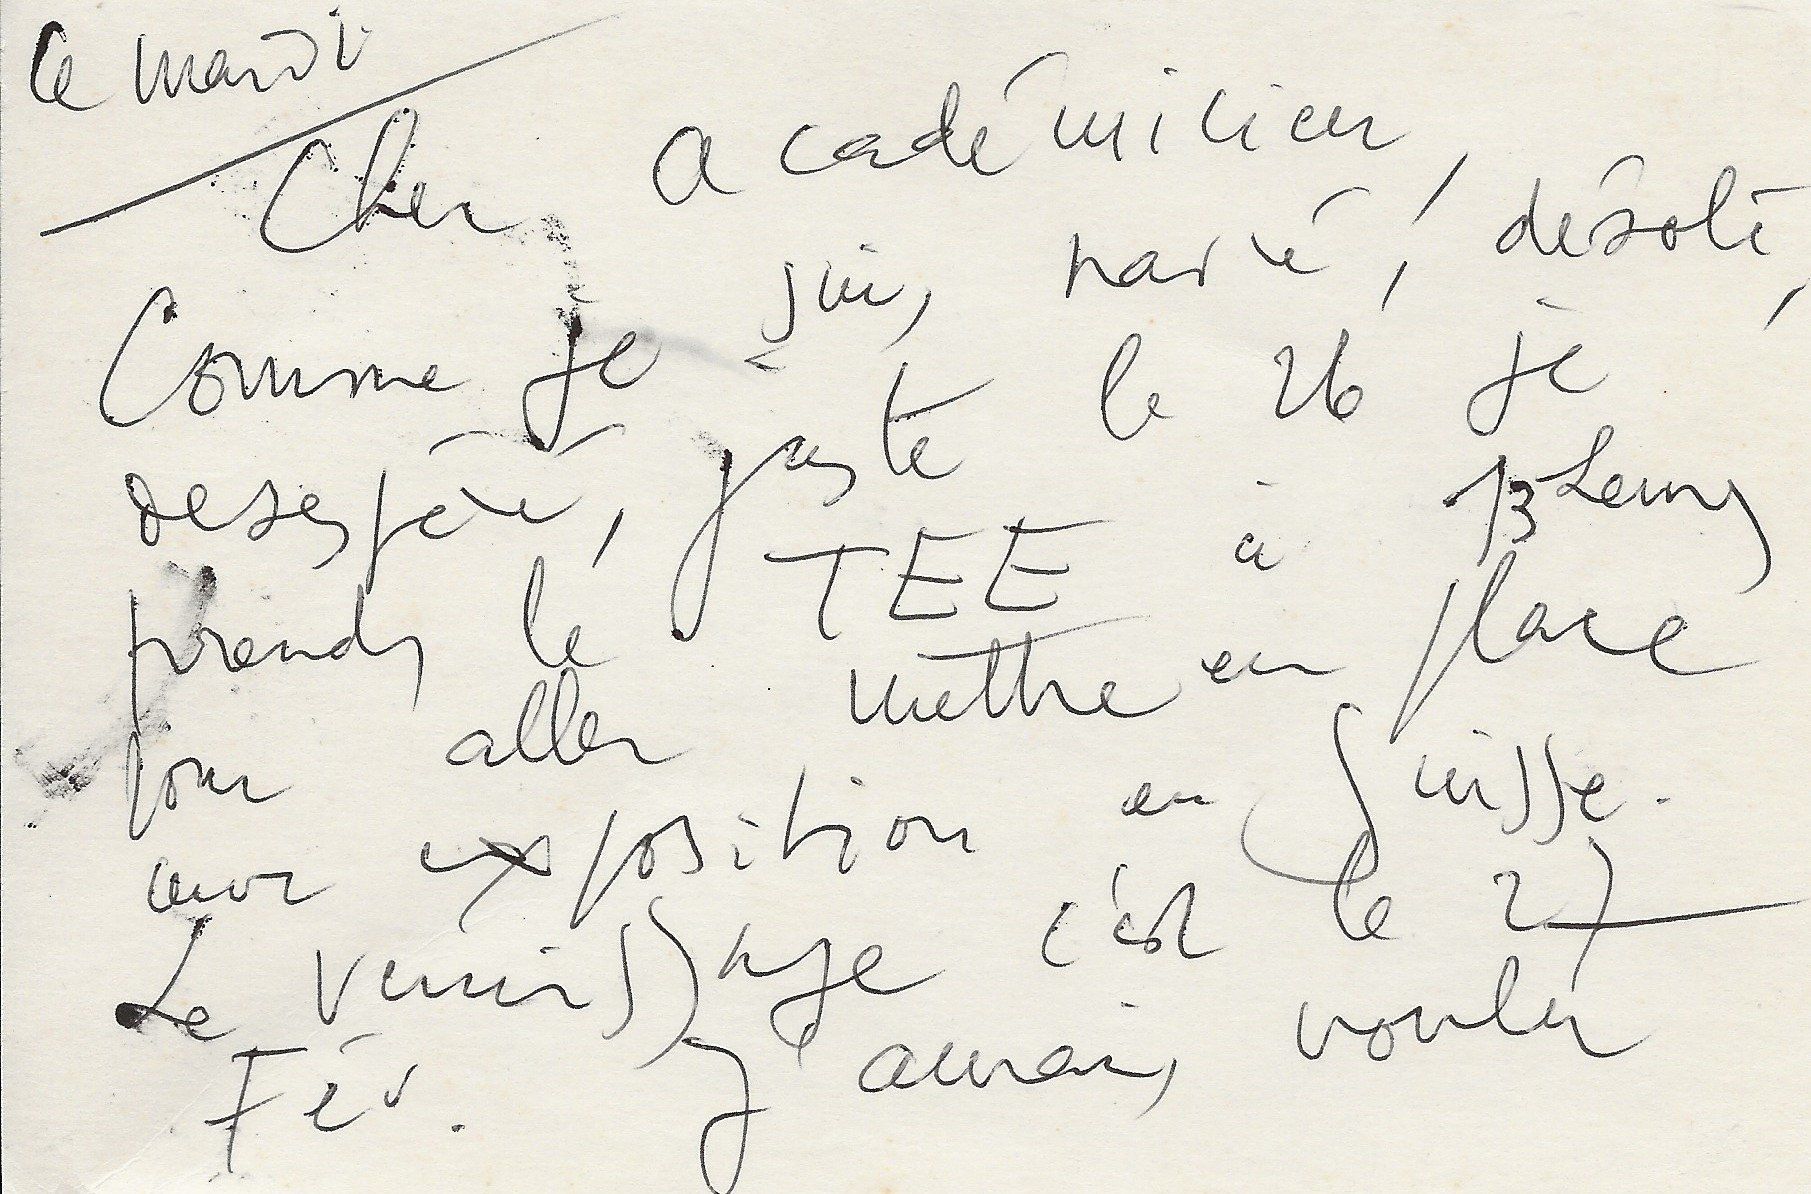 le mardi
Cher académicien,
Comme je suis navré, désolé,
desespéré, juste le 26 je
prends le TEE à 13 heures
pour aller mettre en place
mon exposition en Suisse.
Le vernissage c'est le 27
Fév. J'aurais voulu